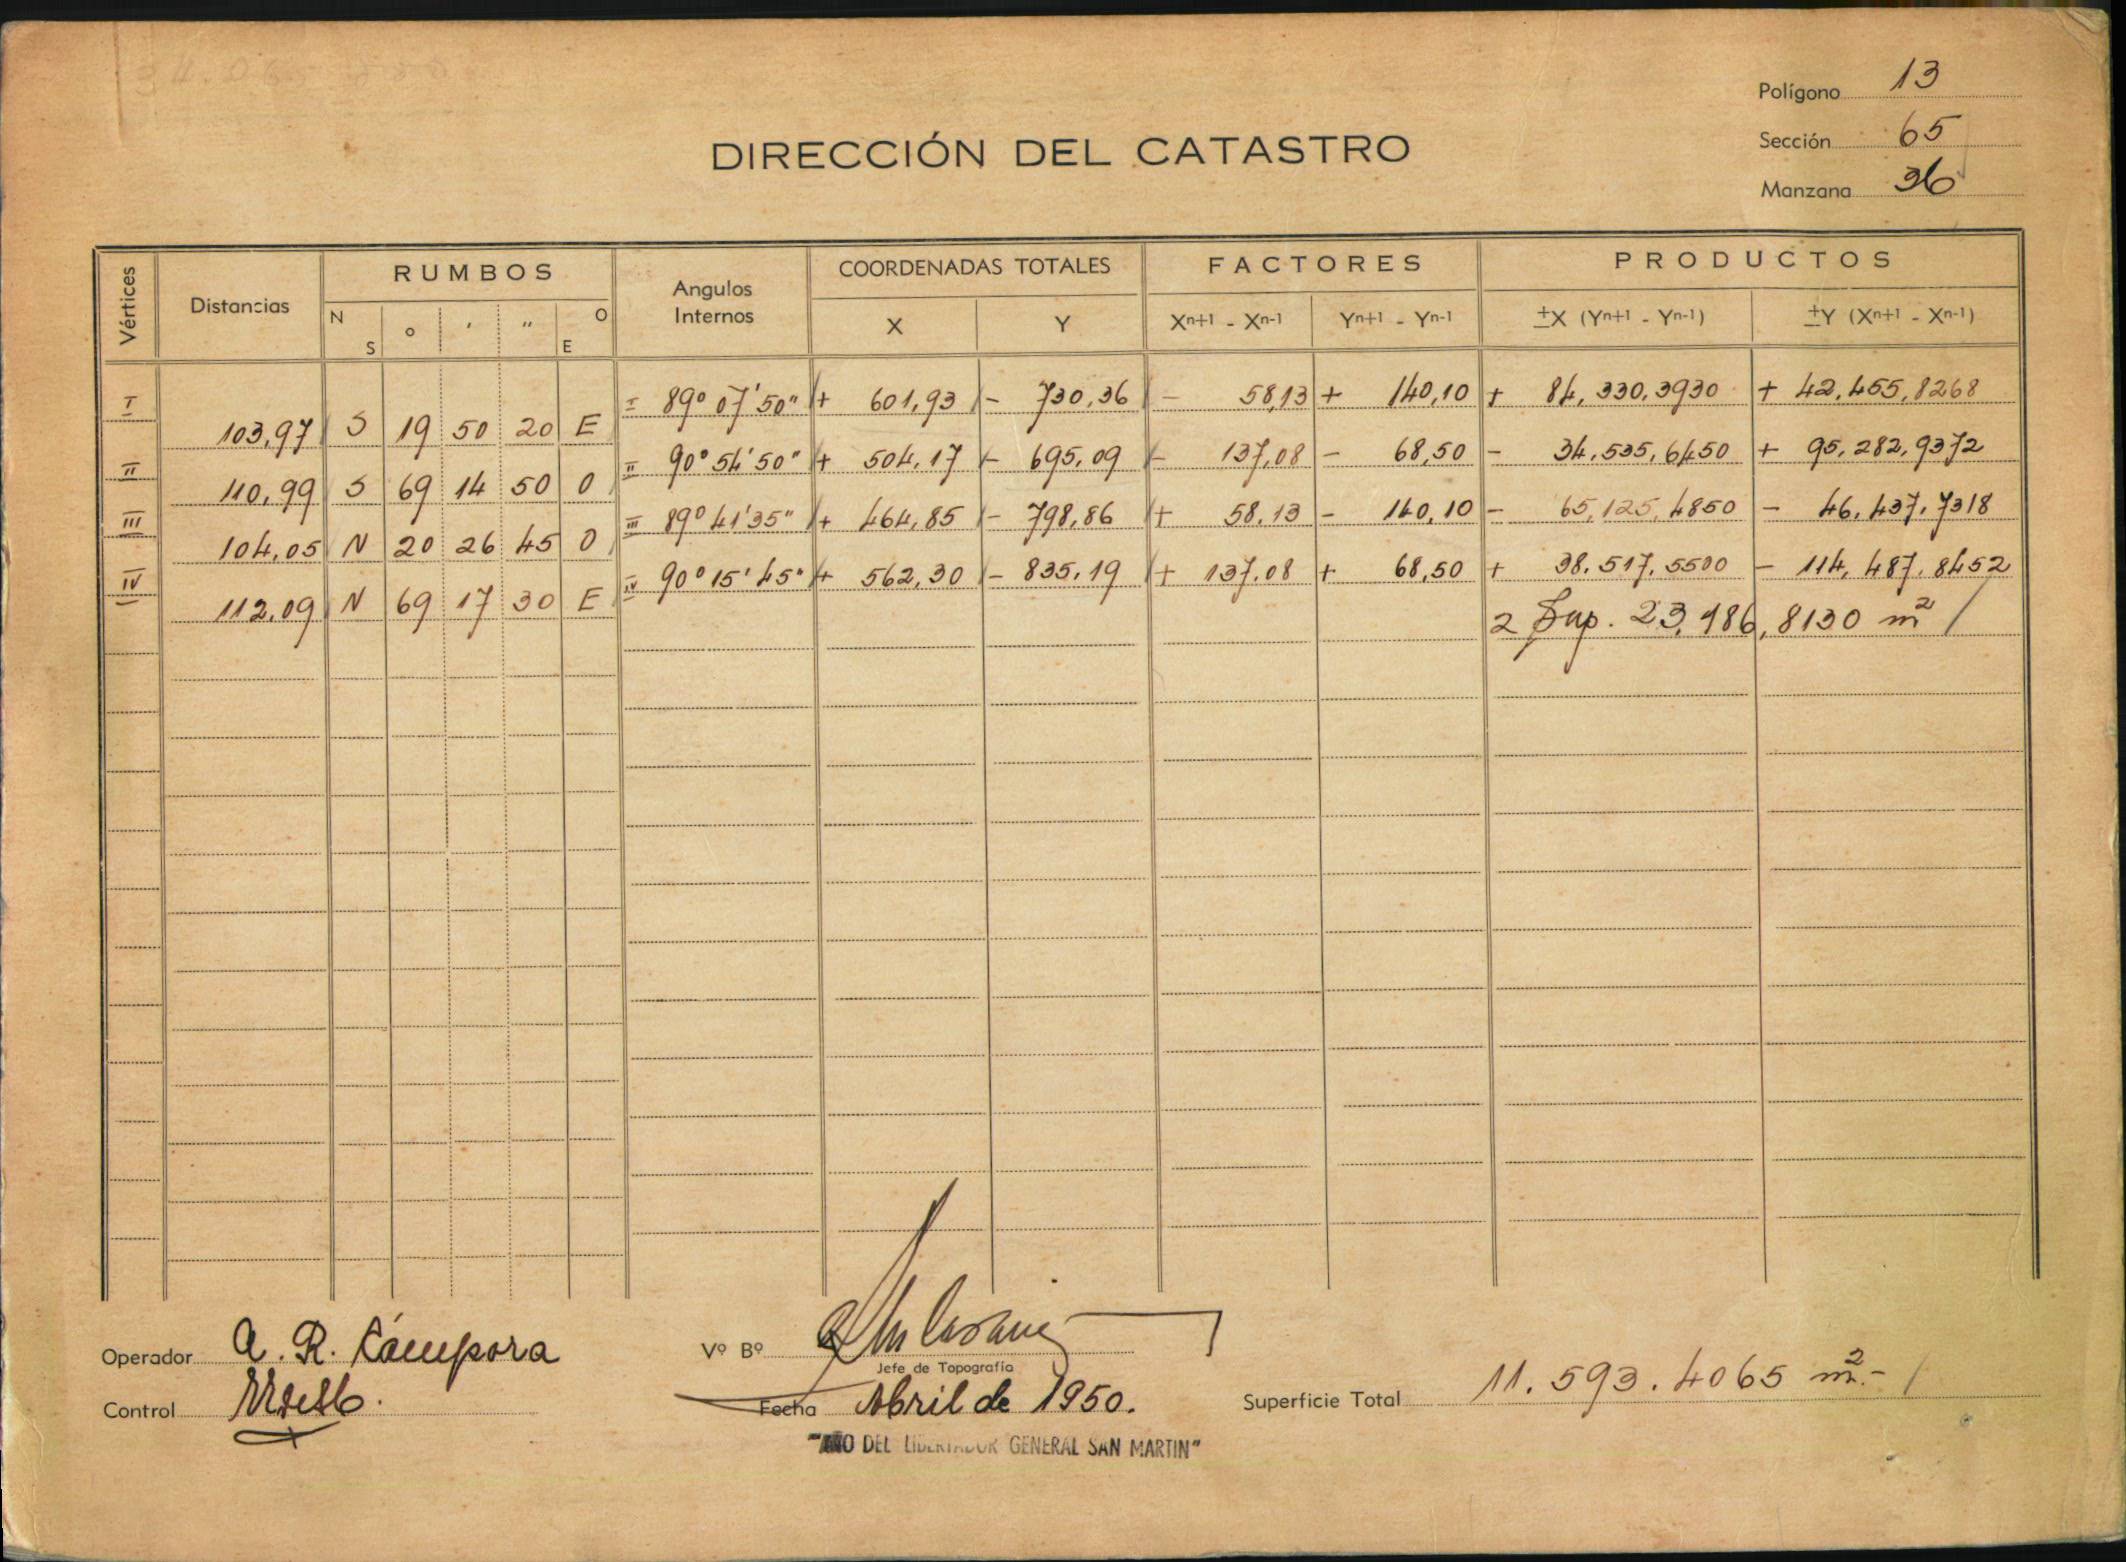 Polígono 13
Sección 65
Manzana 36
DIRECCIÓN DEL CATASTRO
Vértices Distancias RUMBOS Angulos Internos COORDENADAS TOTALES FACTORES PRODUCTOS
N S ° ' " O E X Y Xn+1 - Xn-1 Yn+1 - Yn-1 ±X (Yn+1 - Yn-1) ±Y (Xn+1 - Xn-1)
I 103,97 S 19 50 20 E I 89° 07' 50" + 601,93 - 730,36 - 58,13 + 140,10 + 84,330,3930 + 42,455,8268
II 110,99 S 69 14 50 O II 90° 54' 50" + 504,17 - 695,09 - 137,08 - 68,50 - 34,535,6450 + 95,282,9372
III 104,05 N 20 26 45 O III 89° 41' 35" + 464,85 - 798,86 + 58,13 - 140,10 - 65,125,4850 - 46,437,7318
IV 112,09 N 69 17 30 E IV 90° 15' 45" + 562,30 - 835,19 + 137,08 + 68,50 + 38.517,5500 - 114,487,8452
2 Sup. 23,186,8130 m²
Operador A. R. Cámpora Vº Bº
Jefe de Topografía
Control Fecha Abril de 1950. Superficie Total 11.593.4065 m².-
"AÑO DEL LIBERTADOR GENERAL SAN MARTIN"